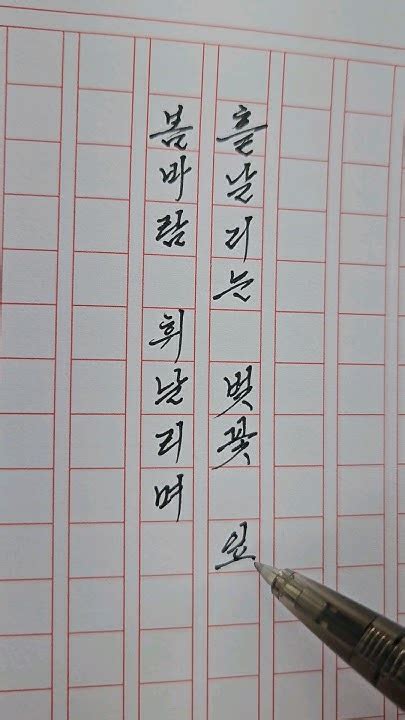 봄바람 휘날리며
흩날리는 벚꽃 잎